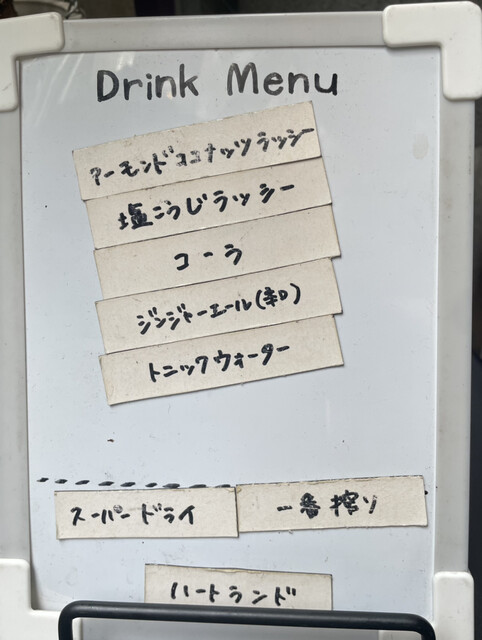 Drink Menu
アーモンドココナッツラッシー
塩こうじラッシー
コーラ
ジンジャーエール(辛口)
トニックウォーター
スーパードライ
一番搾り
ハートランド